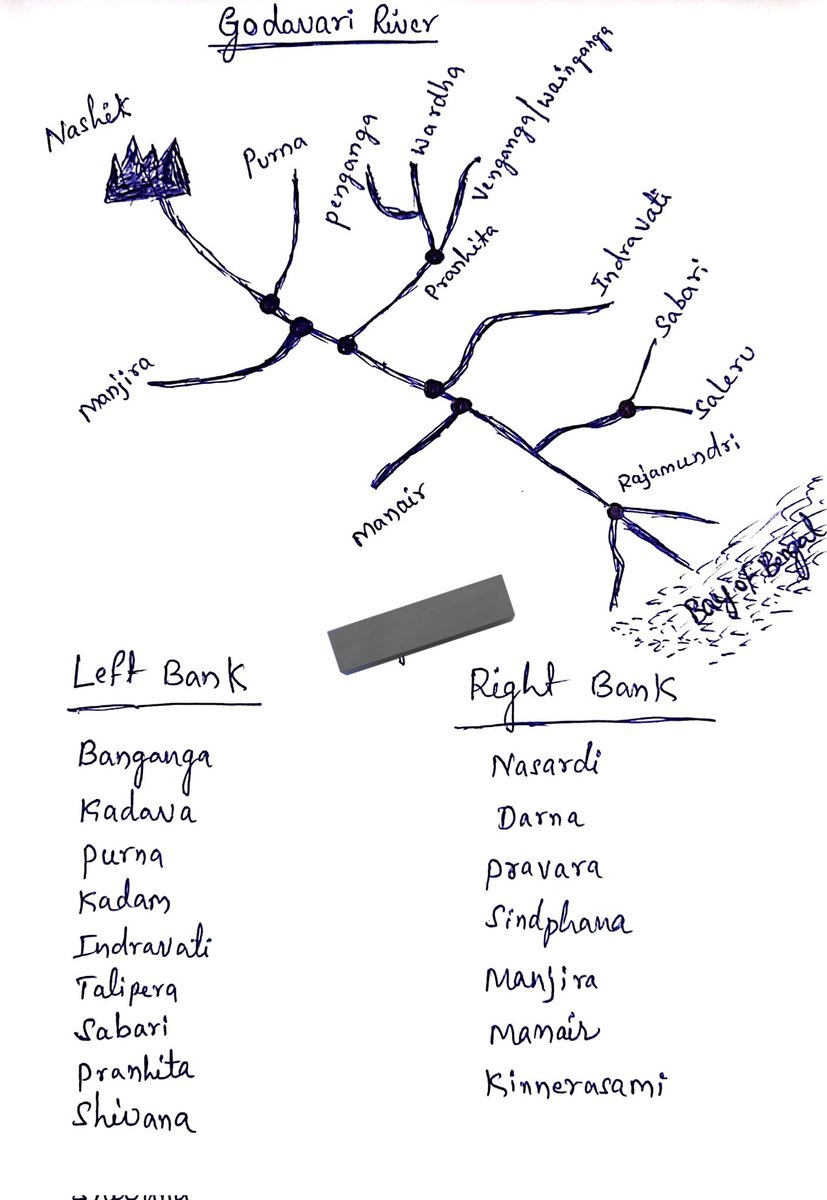 Godavari River
Nashik
Purna
Penganga
Wardha
Venganga/Wainganga
Pranhita
Indravati
Sabari
Saleru
Manjira
Manair
Rajamundri
Bay of Bengal
Left Bank
Banganga
Kadava
Purna
Kadam
Indravati
Talipera
Sabari
Pranhita
Shivana
Right Bank
Nasardi
Darna
Pravara
Sindphana
Manjira
Manair
Kinnerasami